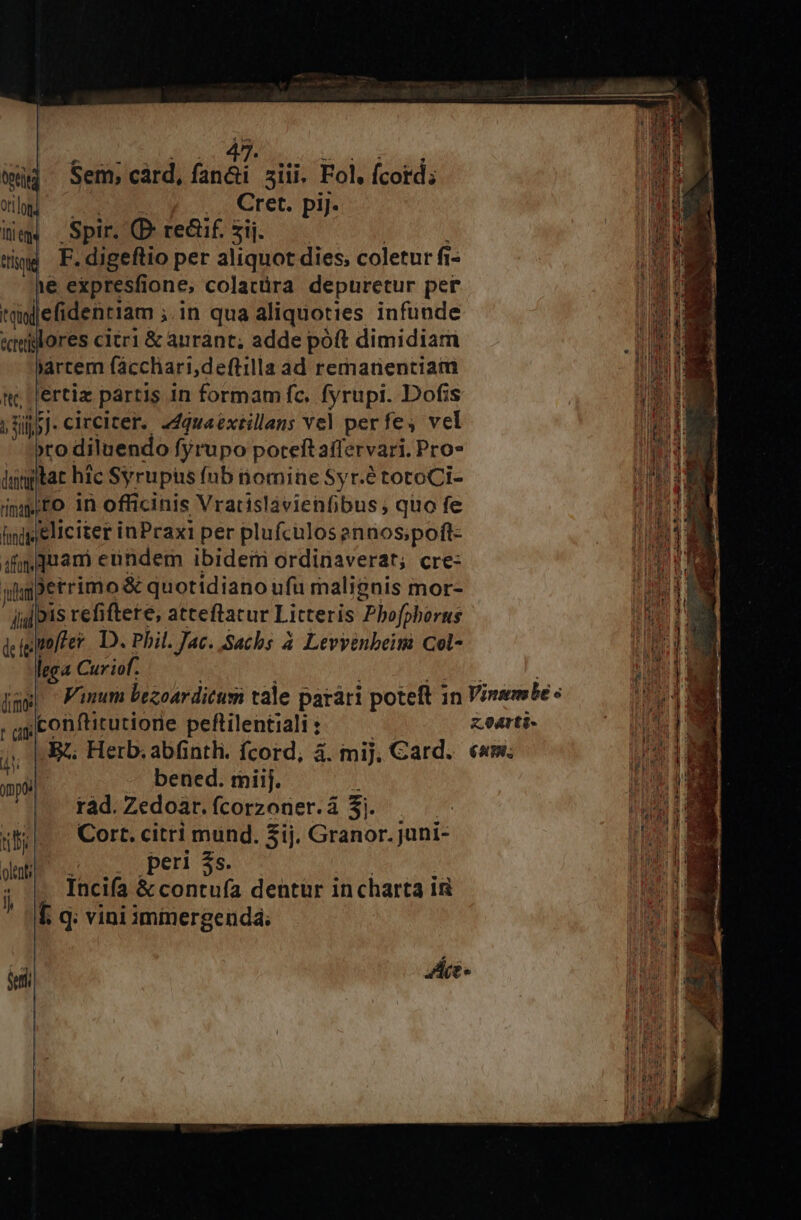 47.
Sem, card, sancti ʒiii. Fol. scord.
Cret. pij.
Spir. rectif. ʒij.
F. digestio per aliquot dies, coletur si-
ne expressione, colatura depuretur per
residentiam; in qua aliquoties infunde
flores citri & aurant. adde post dimidiam
partem sacchari, destilla ad remanentiam
tertiæ partis in formam sc. syrupi. Dosis
ʒj. circiter. Aqua exstillans vel per se, vel
pro diluendo syrupo potest asservari. Pro-
stat hîc Syrupus sub nomine Syr. è toto Ci-
tro in officinis Vratislaviensibus, quo se
feliciter in Praxi per plusculos annos, post-
quam eundem ibidem ordinaverat, cre-
berrimo & quotidiano usu malignis mor-
bis resistere, attestatur Litteris Phosphorus
noster D. Phil. Jac. Sachs à Levvenheim Col-
lega Curios.
Vinum bezoardicum tale parari potest in
constitutione pestilentiali:
Vinum be-
zoarti-
cum.
℞. Herb. absinth. scord, á. mij, Card.
bened. miij.
rad. Zedoar. scorzoner. á ℥j.
Cort. citri mund. ℥ij. Granor. juni-
peri ℥s.
Incisa & contusa dentur in charta in
q. vini immergenda.
Ace-